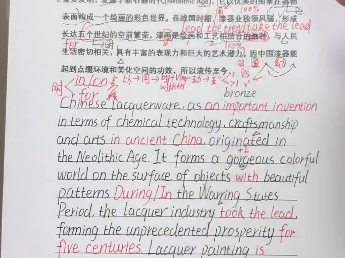 表面构成一个绚丽的彩色世界。在战国时期,漆器业独领风骚,形成
lead the trend/take the lead
长达五个世纪的空前繁荣。漆画是绘画和工艺相结合的
与人民
for
生活密切相关,具有丰富的表现力和巨大的艺术潜力。因中国漆器能
起到点缀环境和美化空间的功效,所以流传至今。
for
bronze
Chinese lacquerware, as an important invention
in terms of chemical technology, craftsmanship
and arts in ancient China, originated in
the Neolithic Age. It forms a gorgeous colorful
world on the surface of objects with beautiful
patterns During/In the Warring States
Period, the lacquer industry took the lead,
forming the unprecedented prosperity for
five centuries. Lacquer painting is